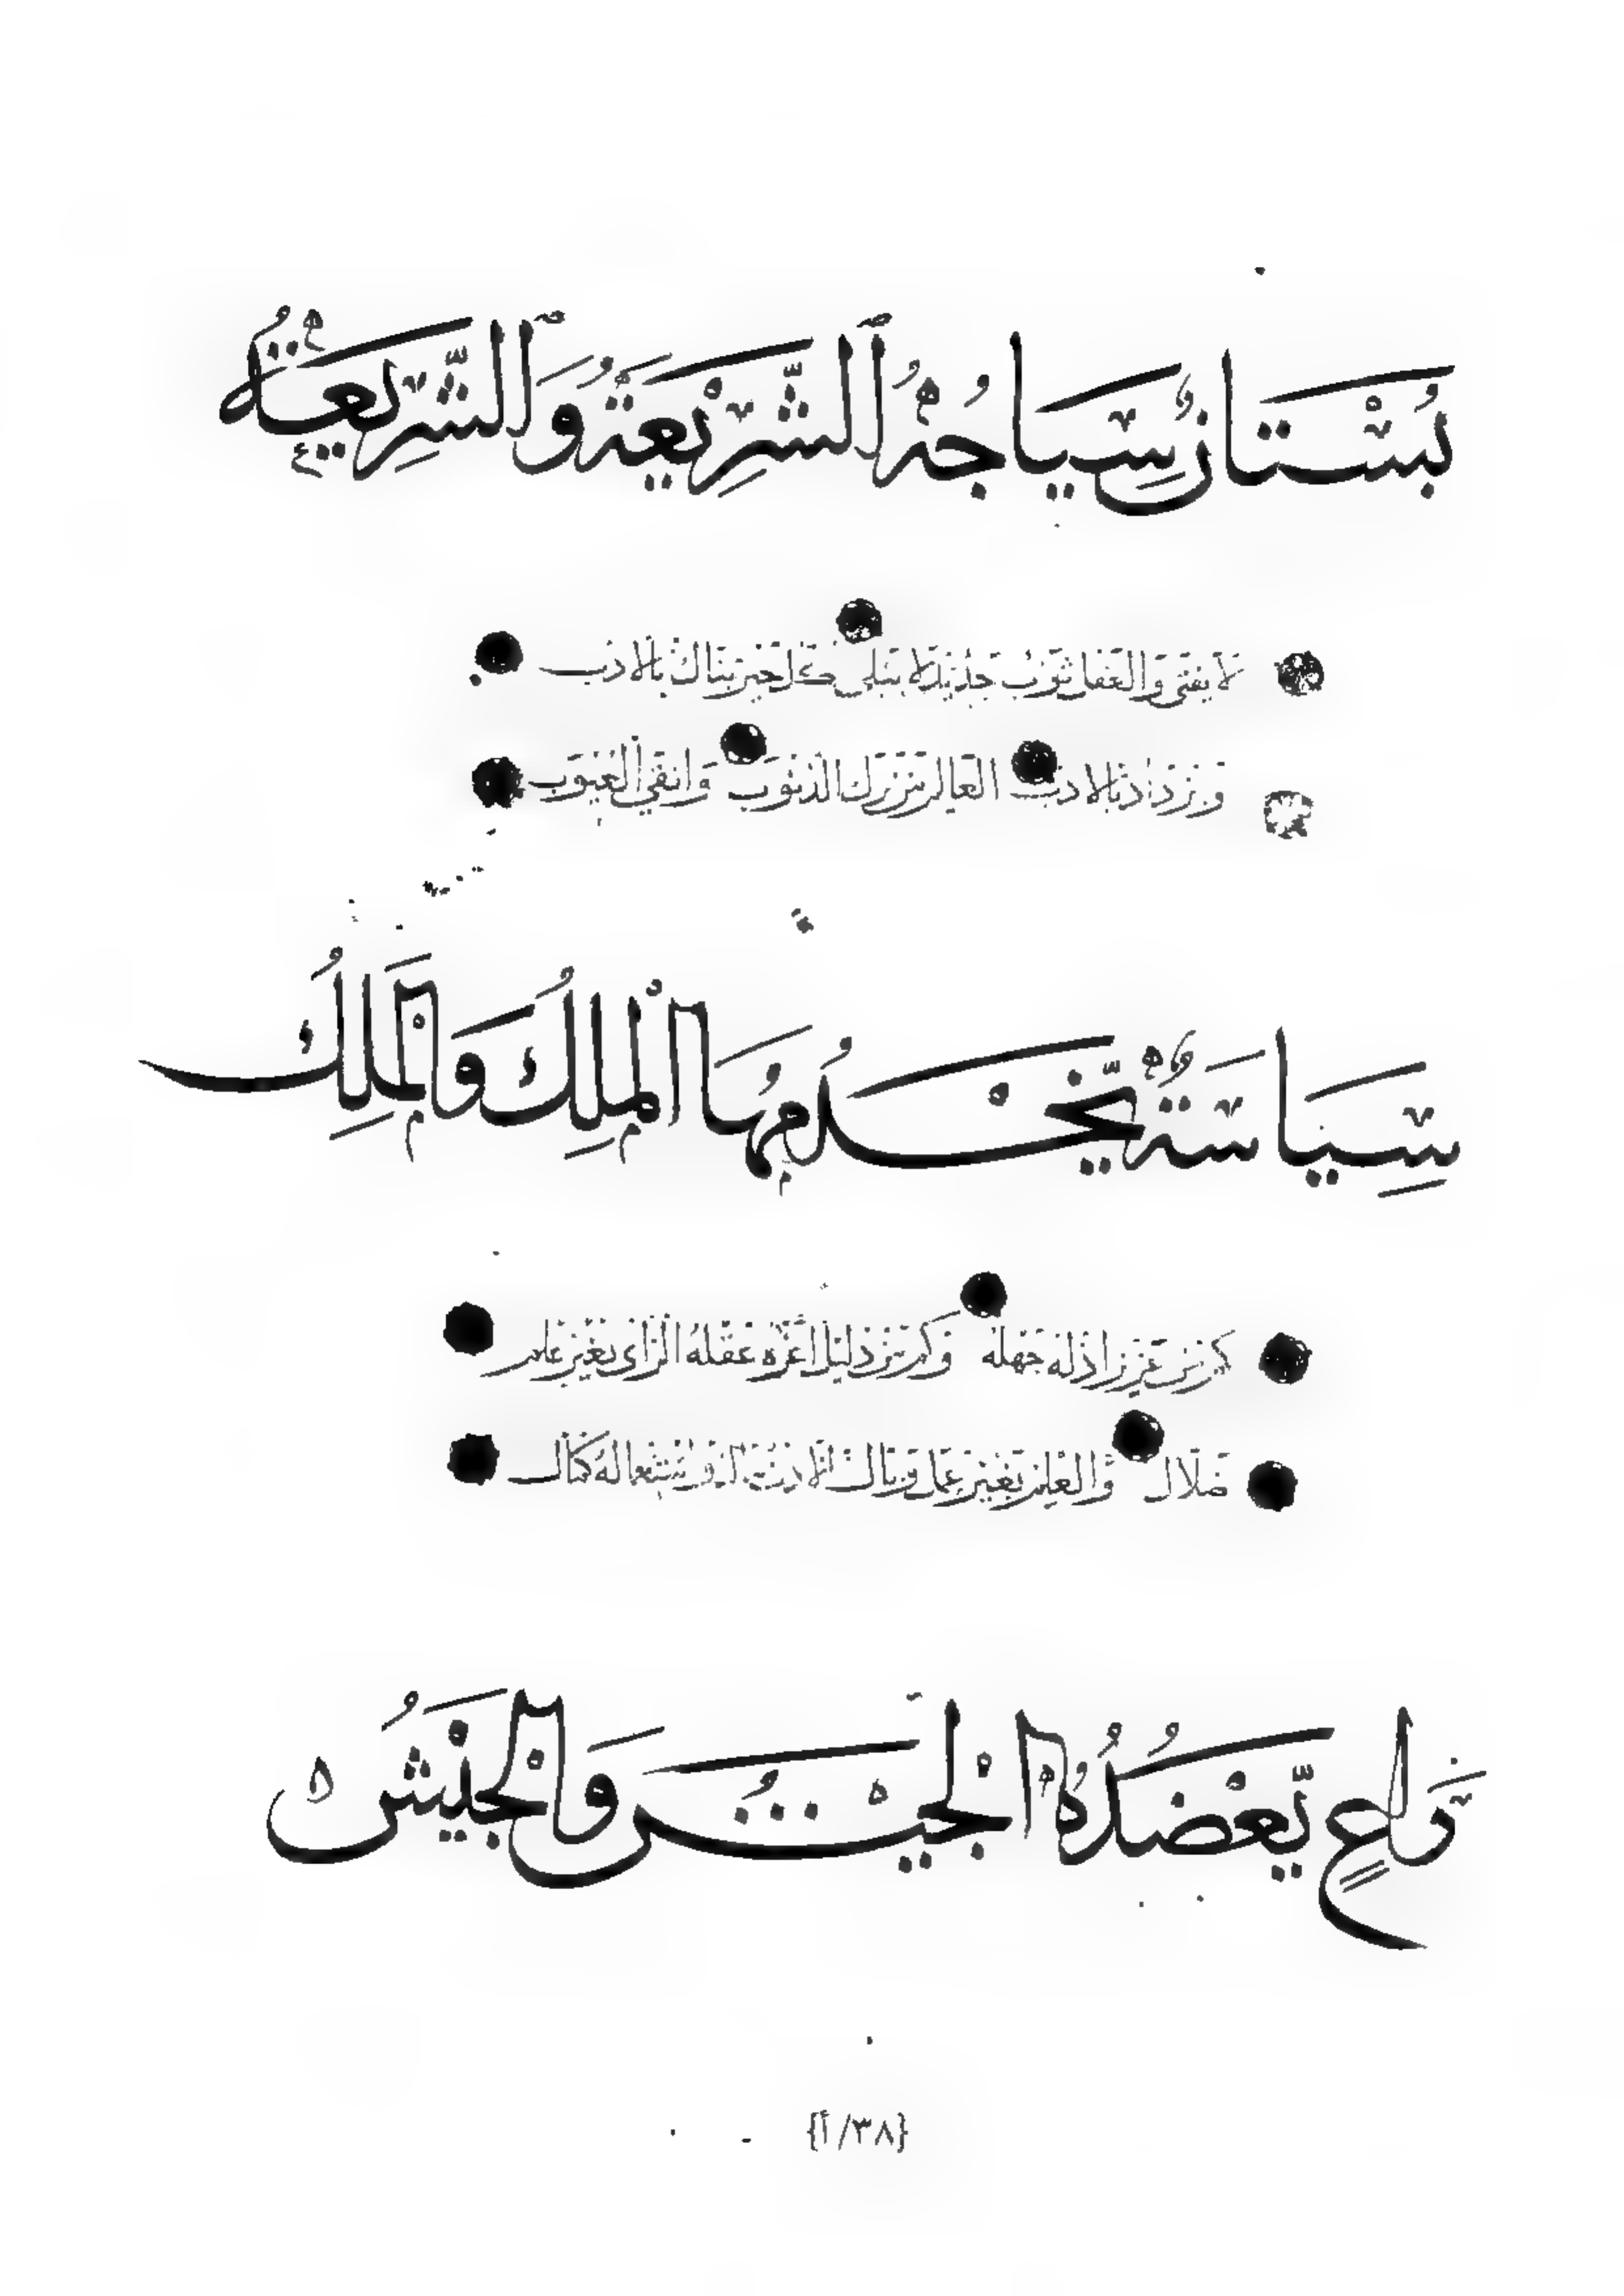 بُسْتَانٌ سِيَاجُهُ ٱلشَّرِيْعَةُ وَٱلشَّرِيعَةُ
لا يفنى والعقل ثوب جديد لا يبلى كل خير ينال بالادب
ويزداد بالادب العالم من ترك الذنوب واتقى العيوب
سِيَاسَةٌ يَّخْدُمُهَا الْمَلِكُ وَالْمَلِكُ
كم من عزيز اذله جهله وكم من ذليل اعزه عقله الراى بغير علم
ضلال والعلم بغير عمل وبال الادب مال واستعماله كمال
رَاعٍ يَّعْضُدُهُ الْجَيْشُ وَالْجَيْشُ
{٣٨/أ}